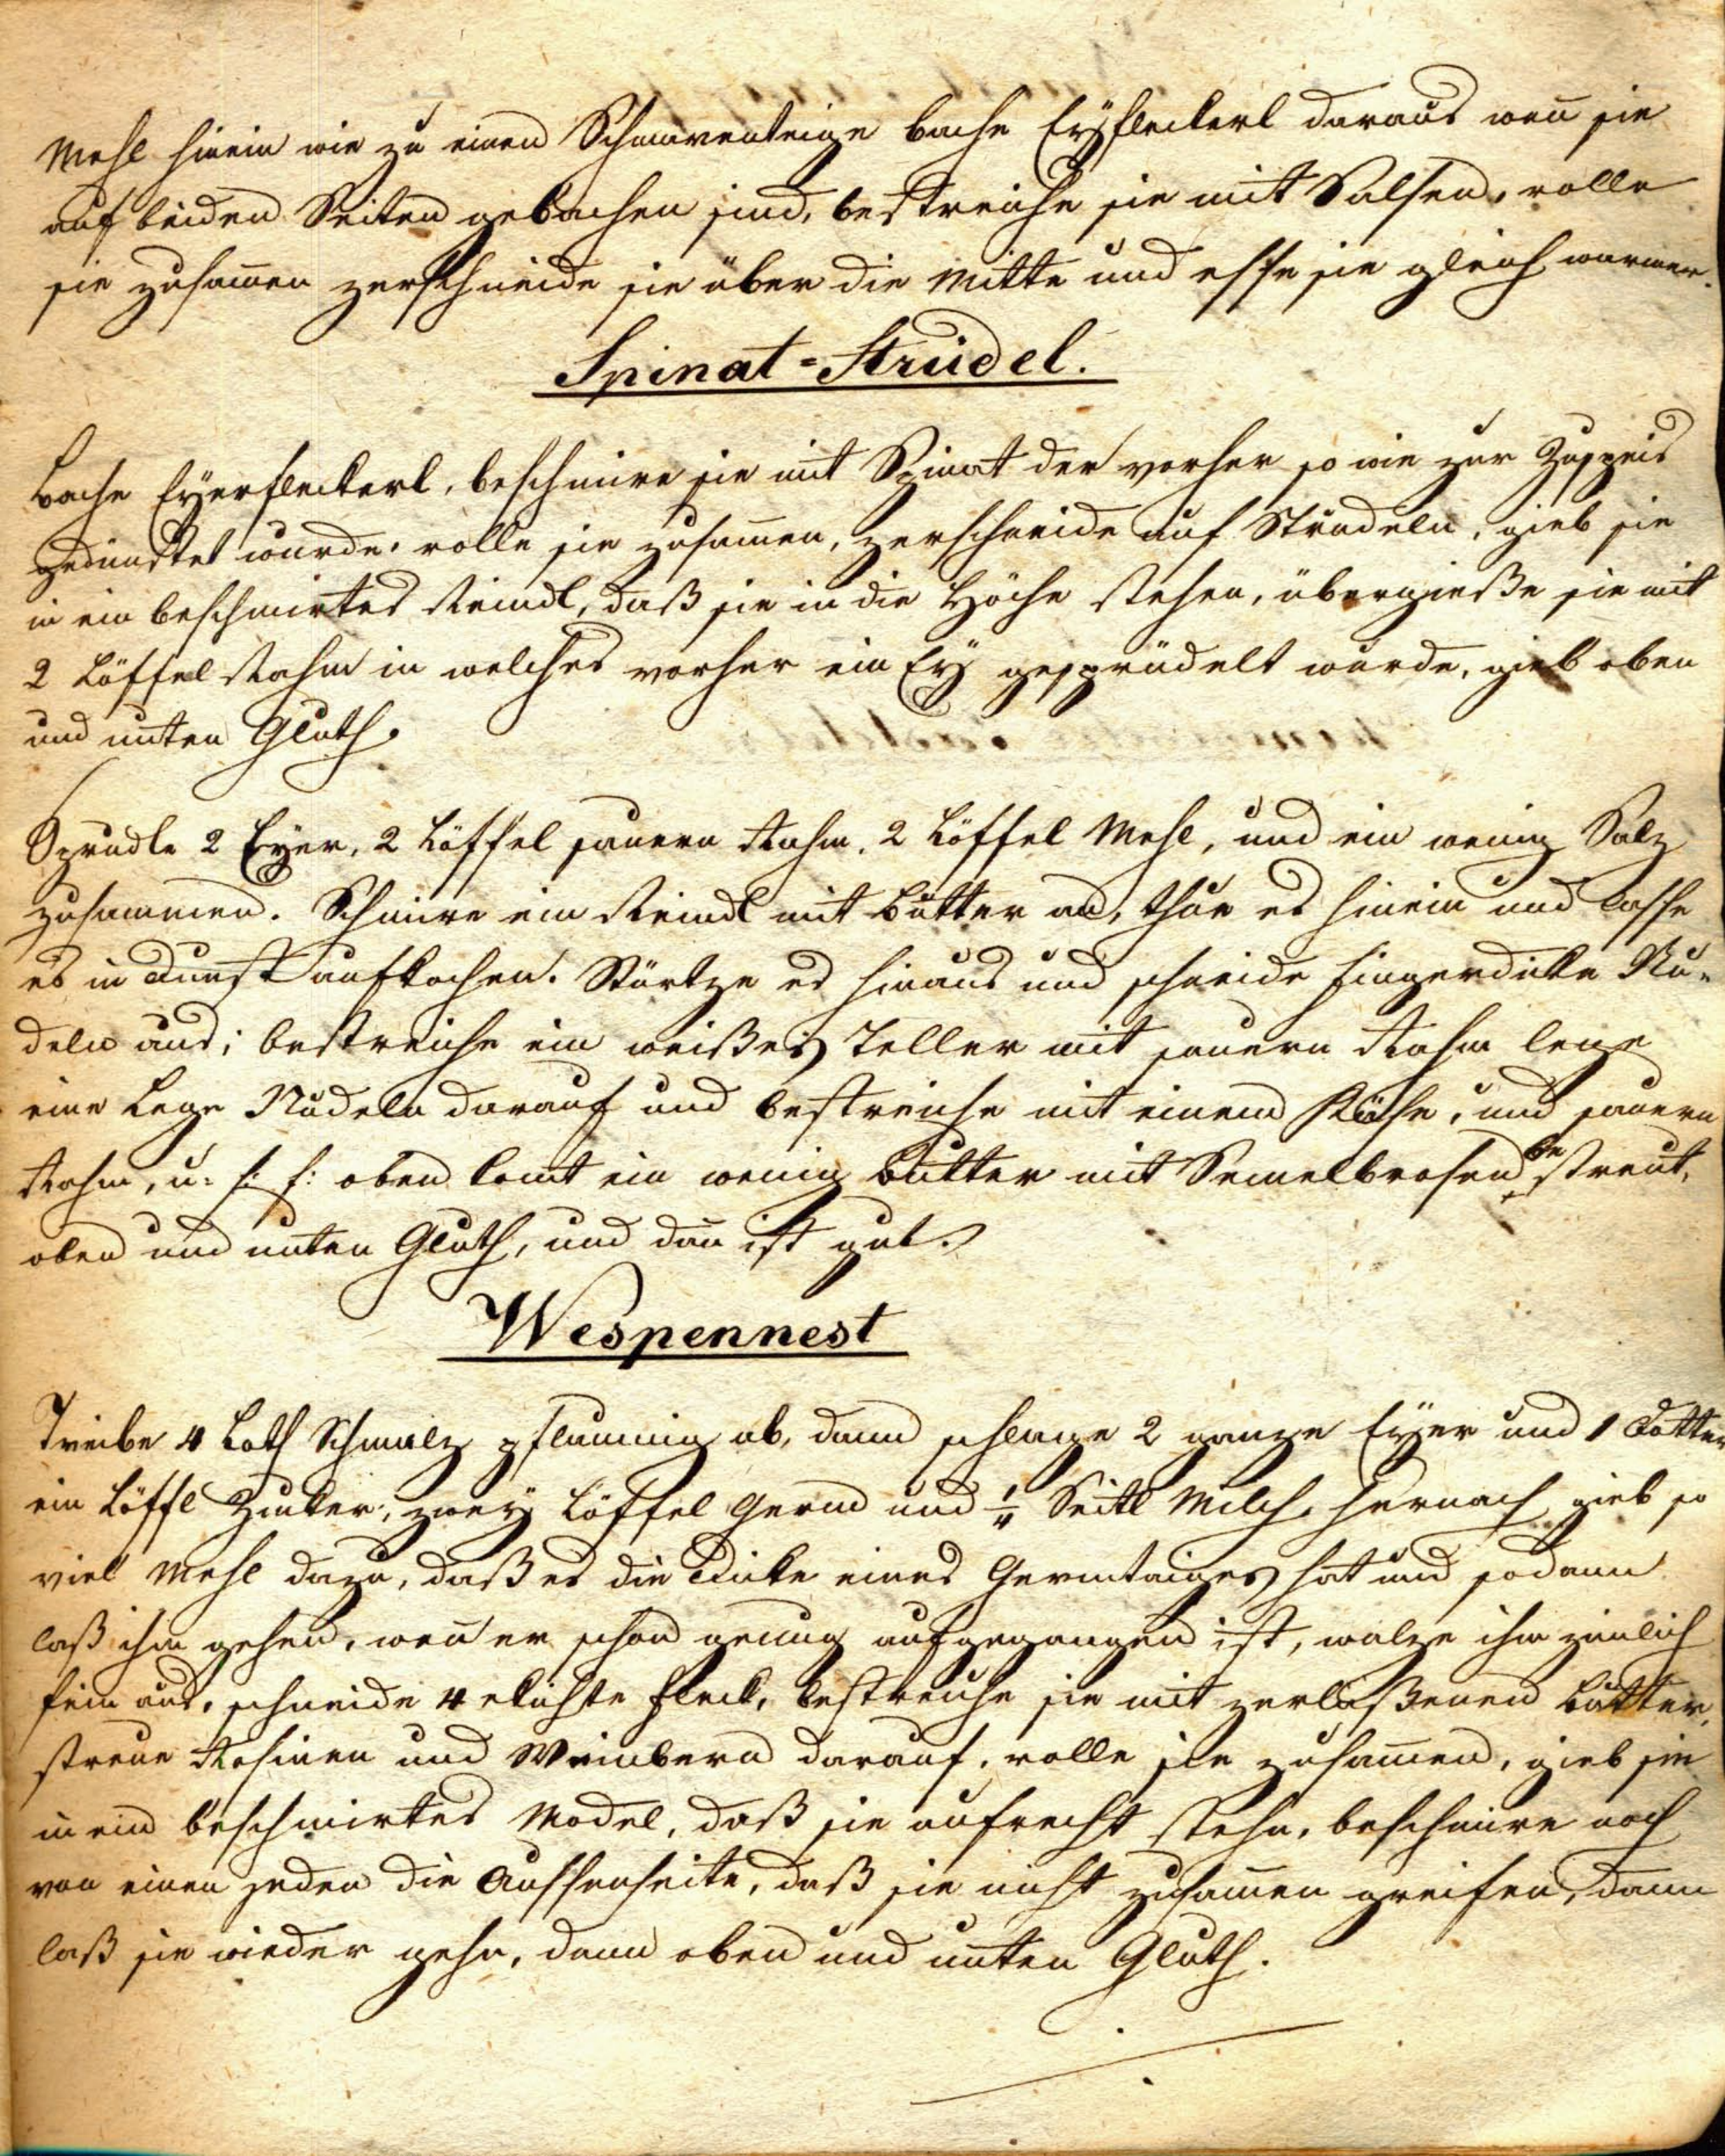 Mehl hinein wie zu einen Schmarenteige bache Eyfleckerl daraus wen̄ sie
auf beiden Seiten gebachen sind, bestreiche sie mit Salsen, rolle
sie zusam̄en zerschneide sie über die Mitte und esse sie gleich warmer.
Spinat=Strudel.
Bache Eyerfleckerl, beschmire sie mit Spinat der vorher so wie zur Zuspeis
gedünstet wurde, rolle sie zusam̄en, zerschneide auf Strudeln, gieb sie
in ein beschmirtes Reindl, daß sie in die Höhe stehen, übergieße sie mit
2 Löffel Rahm in welches vorher ein Ey gesprüdelt wurde, gieb oben
und unten Gluth.
Sprudle 2 Eyer, 2 Löffel sauern Rahm, 2 Löffel Mehl, und ein wenig Salz
zusammen. Schmire ein Reindl mit Butter an, thue es hinein und lasse
es in Dunst aufkochen. Stürtze es hinaus und schneide fingerdicke Nu=
deln aus; bestreiche ein weißes Teller mit sauern Rahm lege
eine Lege Nudeln darauf und bestreiche mit einem Käse, und sauern
Rahm, u: s: f: oben komt ein wenig Butter mit Semelbrosen bestreut,
oben und unten Gluth, und dan̄ ist gut.
Wespennest
Treibe 4 Loth Schmalz pflaumig ab, dann schlage 2 ganze Eyer und 1 Dotter
ein Löffl Zucker, zwey Löffel Germ und ¼ Seitl Milch, hernach gieb so
viel Mehl dazu, daß es die Dicke eines Germtaiges hat und sodann
laß ihm gehen, wen̄ er schon genug aufgegangen ist, walze ihm zimlich
fein aus, schneide 4 ekichte Fleck, bestreiche sie mit zerlaßenen Butter,
streue Rosinen und Weinbern darauf, rolle sie zusam̄en, gieb sie
in ein beschmirtes Model, daß sie aufrecht stehn, beschmire noch
von einen jeden die Aussenseite, daß sie nicht zusam̄en greifen, dann
laß sie wieder gehn, dann oben und unten Gluth.